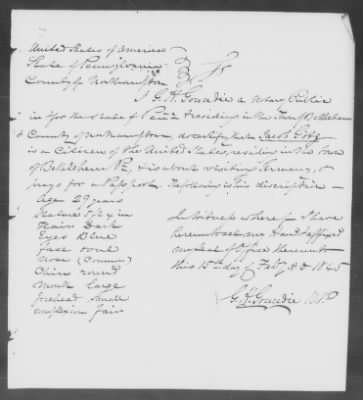 United States of America
State of Pennsylvania } Ss
County of Northampton
I G. H. Goundie a Notary Public
in & for the State of Penna & residing in the Town of Bethlehem
& County of Northampton, do certify, that Jacob
is a Citizen of the United States, residing in the Town
of Bethlehem Pa, & is about visiting Germany, &
prays for a Passport. The following is his discription —
Age 29 years
Stature 5 ft in
Hair Dark
Eyes Blue
face oval
Nose (Common)
Chin round
Mouth large
forehead small
complexion fair
In witness whereof I have
hereunto set my Hand & affixed
my seal of Office hereunto
this 15th day of Feby A D 1845
G. H. Goundie N.P.